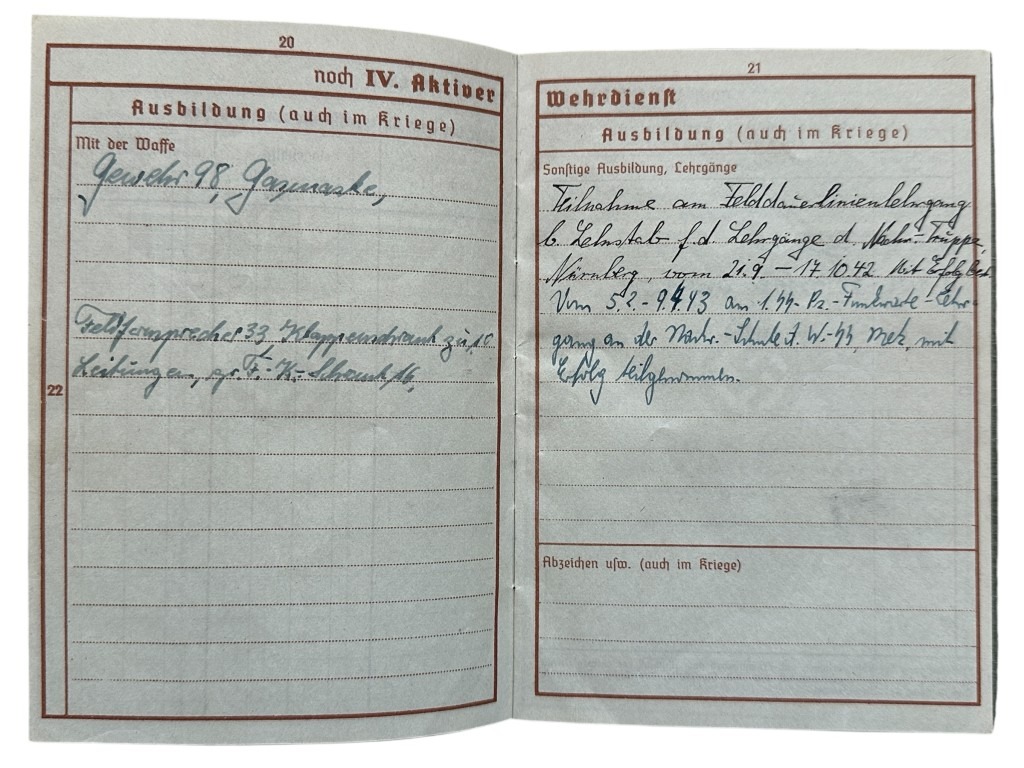 20
noch IV. Aktiver
Ausbildung (auch im Kriege)
Mit der Waffe
Gewehr 98, Gasmaske,
Feldfernsprecher 33, Klappenschrank zu 10
Leitungen, gr. F.-K.-Schrank 16,
22
21
Wehrdienst
Ausbildung (auch im Kriege)
Sonstige Ausbildung, Lehrgänge
Teilnahme am Felddauerlinienlehrgang
b. Lehrstab f.d. Lehrgänge d. Nachr.-Truppe,
Nürnberg, vom 21.9. – 17.10.42 Mit Erfolg
Vom 5.2.-9.4.43 am 1. SS-Pz.-Funkwarte-Lehr-
gang an der Nachr.-Schule d. W-SS, Metz, mit
Erfolg teilgenommen.
Abzeichen usw. (auch im Kriege)